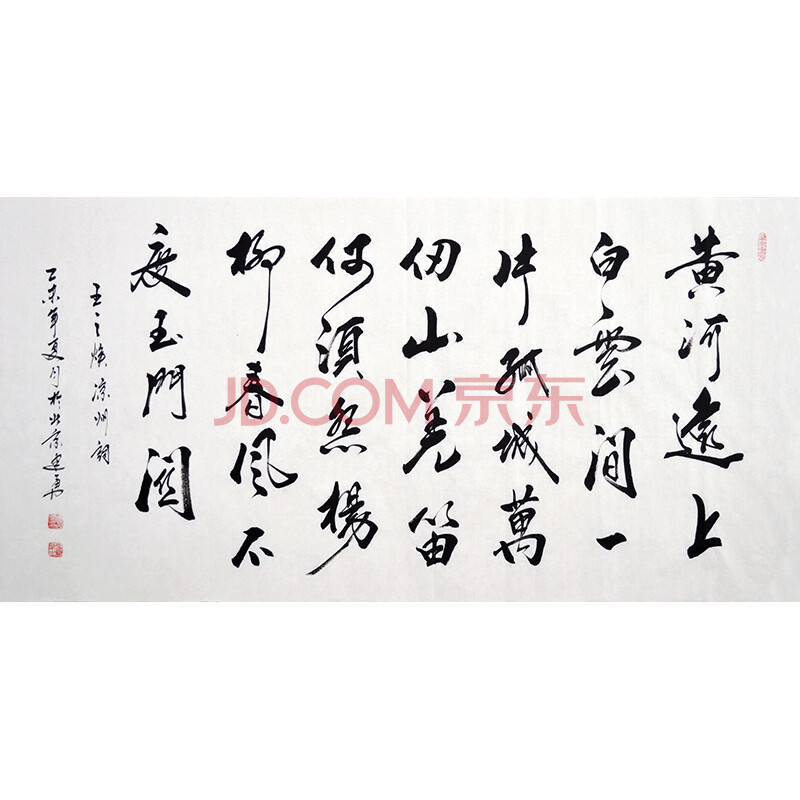 黄河遠上
白雲間一
片孤城萬
仞山羌笛
何須怨楊
柳春風不
度玉門関
王之煥凉州詞
乙未年夏月於北京建勇
JD.COM 京东